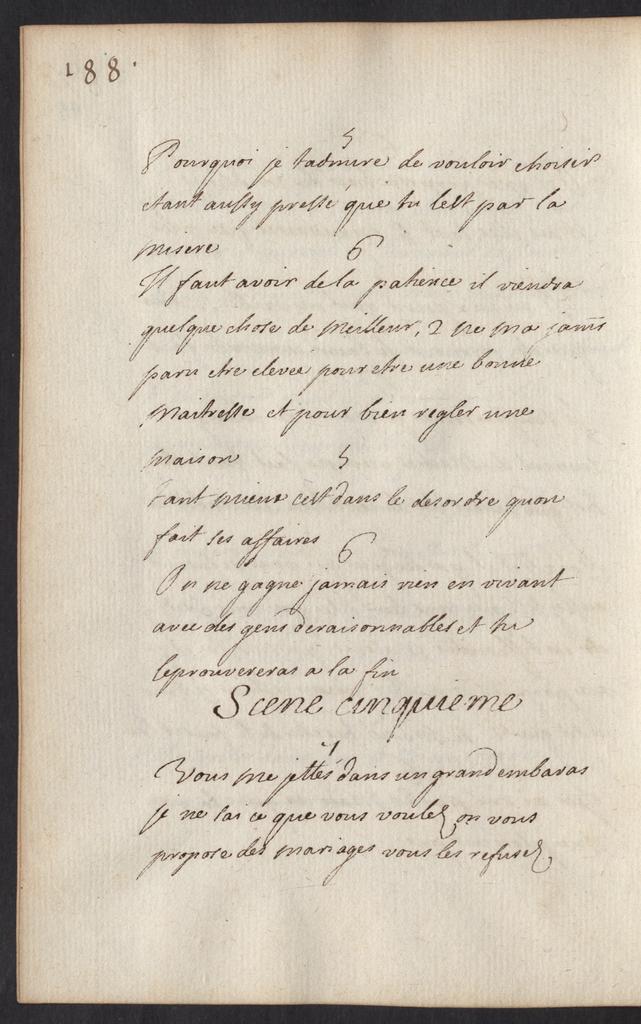 188.
5
Pourquoi je tadmire de vouloir choisir
etant aussy pressé que tu lest par la
misere
6
Il faut avoir de la patience il viendra
quelque chose de meilleur, 2 ne ma jamis
paru etre elevée pour etre une bonne
maitresse et pour bien regler une
maison
5
tant mieux cest dans le desordre quon
fait ses affaires
6
On ne gagne jamais rien en vivant
avec des gens deraisonnables et tu
leprouvereras a la fin
Scene cinquieme
1
Vous me jettés dans un grand embaras
je ne sai ce que vous voulez on vous
propose des mariages vous les refusez,